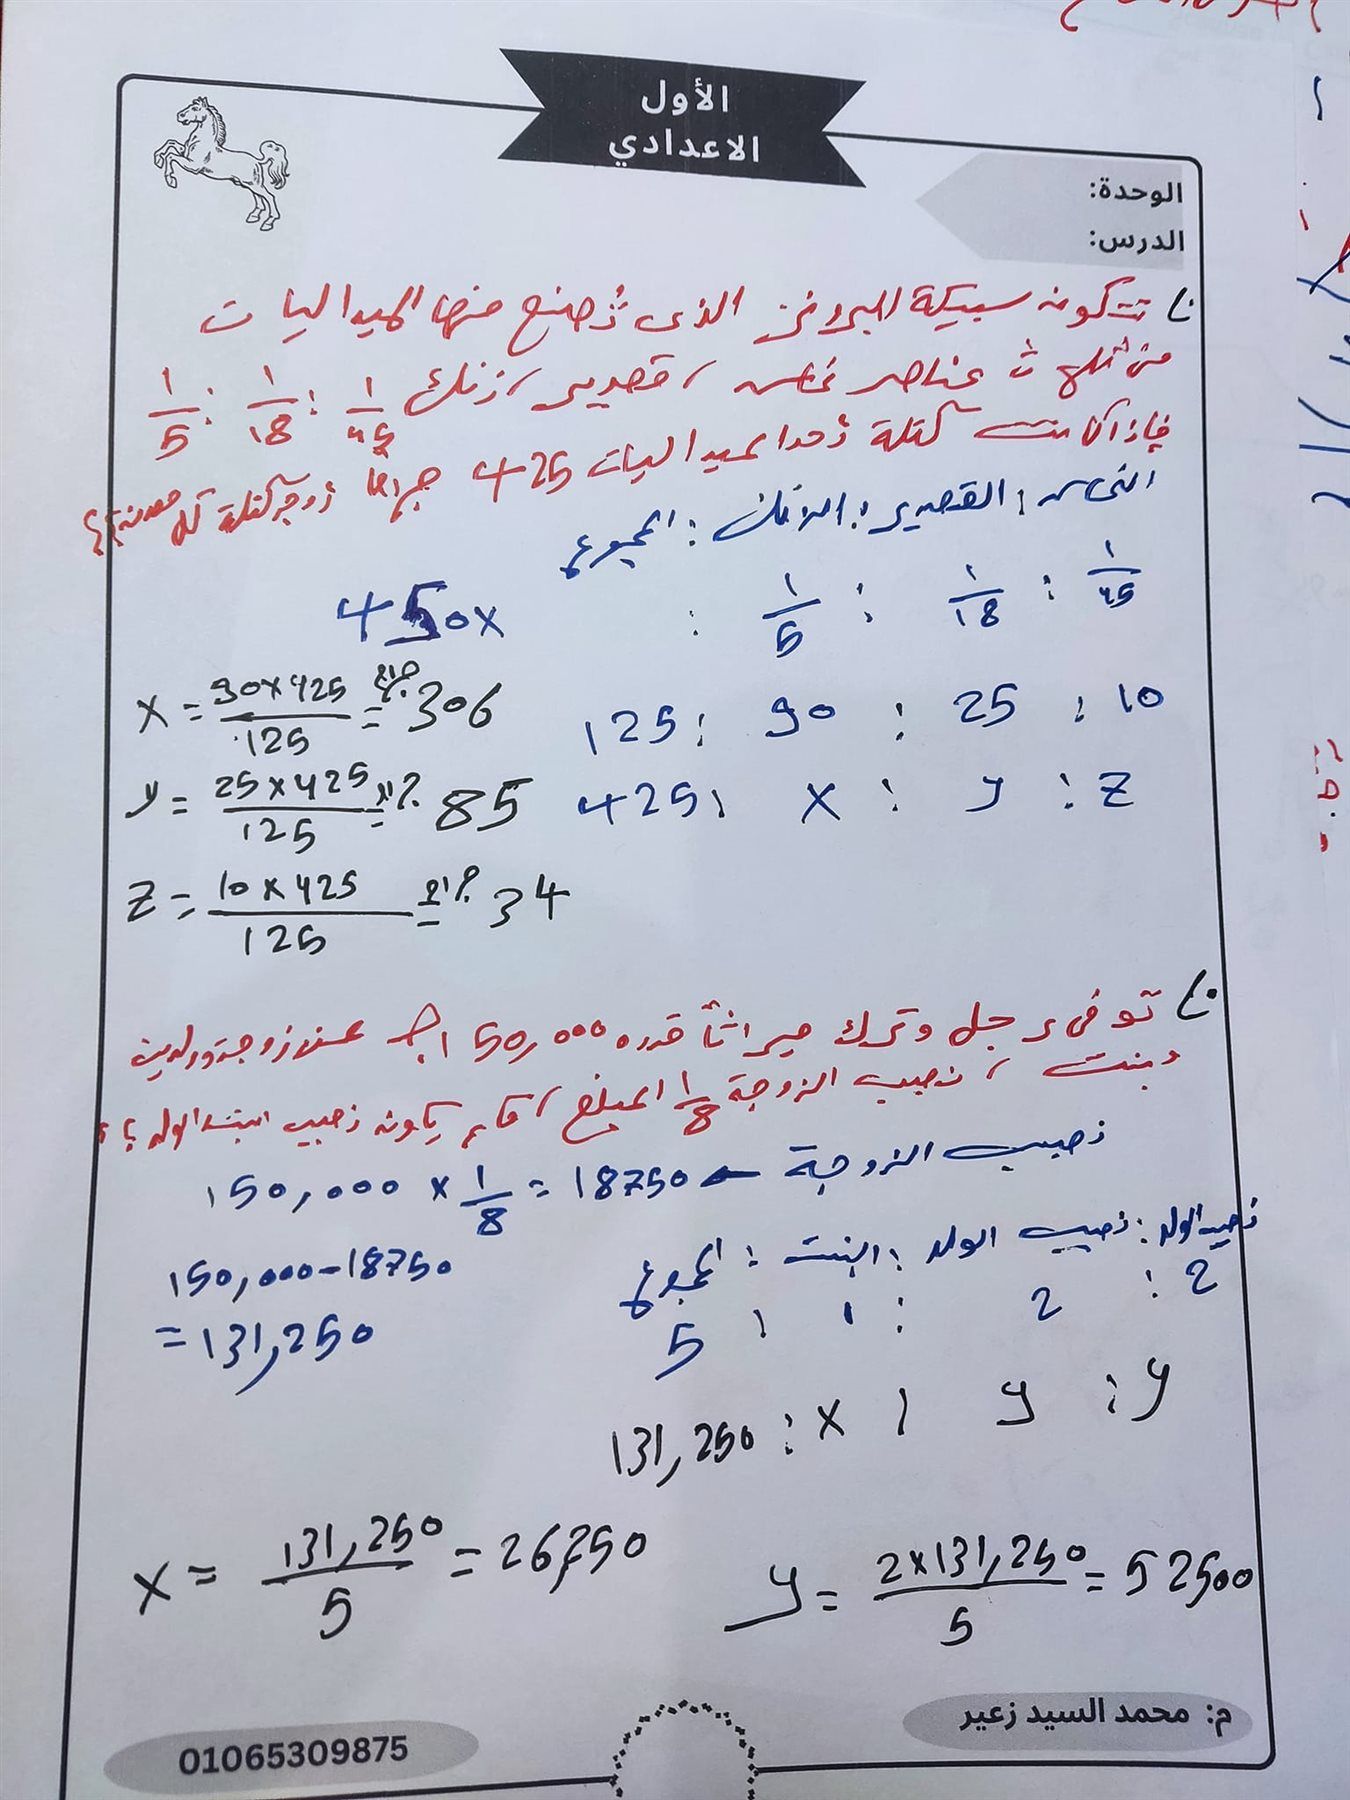 الأول
الاعدادي
الوحدة:
الدرس:
تتكون سبيكة البرونز الذى تُصنع منها الميداليات
من ثلاث عناصر نحاس، قصدير، زنك 1/45 : 1/18 : 1/5
فإذا كانت كتلة أحدا ميداليات 425 جراما أوجد كتلة كل معدن؟؟
النحاس : القصدير : الزنك : المجموع
1/45 : 1/18 : 1/5 :
450x
10 : 25 : 90 : 125
Z : y : x : 425
x = 90×425/125 = 306 جرام
y = 25×425/125 = 85 جرام
Z = 10×425/125 = 34 جرام
توفى رجل وترك ميراثاً قدره 150,000 جـ عن زوجة وولدين
وبنت، نصيب الزوجة 1/8 المبلغ، فكم يكون نصيب البنت والولد؟؟
نصيب الزوجة ← 150,000 × 1/8 = 18750
نصيب الولد : نصيب الولد : البنت : المجموع
150,000-18750
2 : 2 : 1 : 5
= 131,250
y : y : x : 131,250
x = 131,250/5 = 26,250
y = 2×131,250/5 = 52500
م: محمد السيد زعير
01065309875